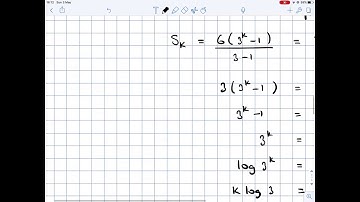 S_K = 6(3^k-1)/3-1 =
3(3^k-1) =
3^k-1 =
3^k =
log 3^k =
K log 3 =